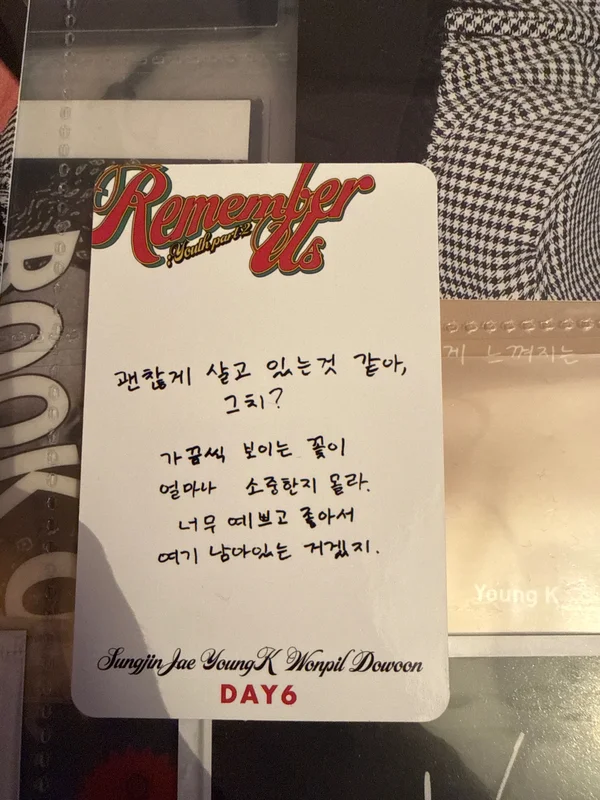 Remember
Us
: Youth part 2
괜찮게 살고 있는것 같아,
그치?
가끔씩 보이는 꽃이
얼마나 소중한지 몰라.
너무 예쁘고 좋아서
여기 남아있는 거겠지.
Sungjin Jae YoungK Wonpil Dowoon
DAY6
게 느껴지는
Young K
BOOK